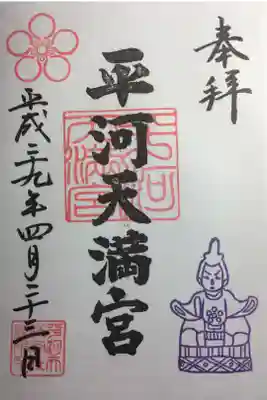 奉拝
平河天満宮
平成二九年四月二十三日